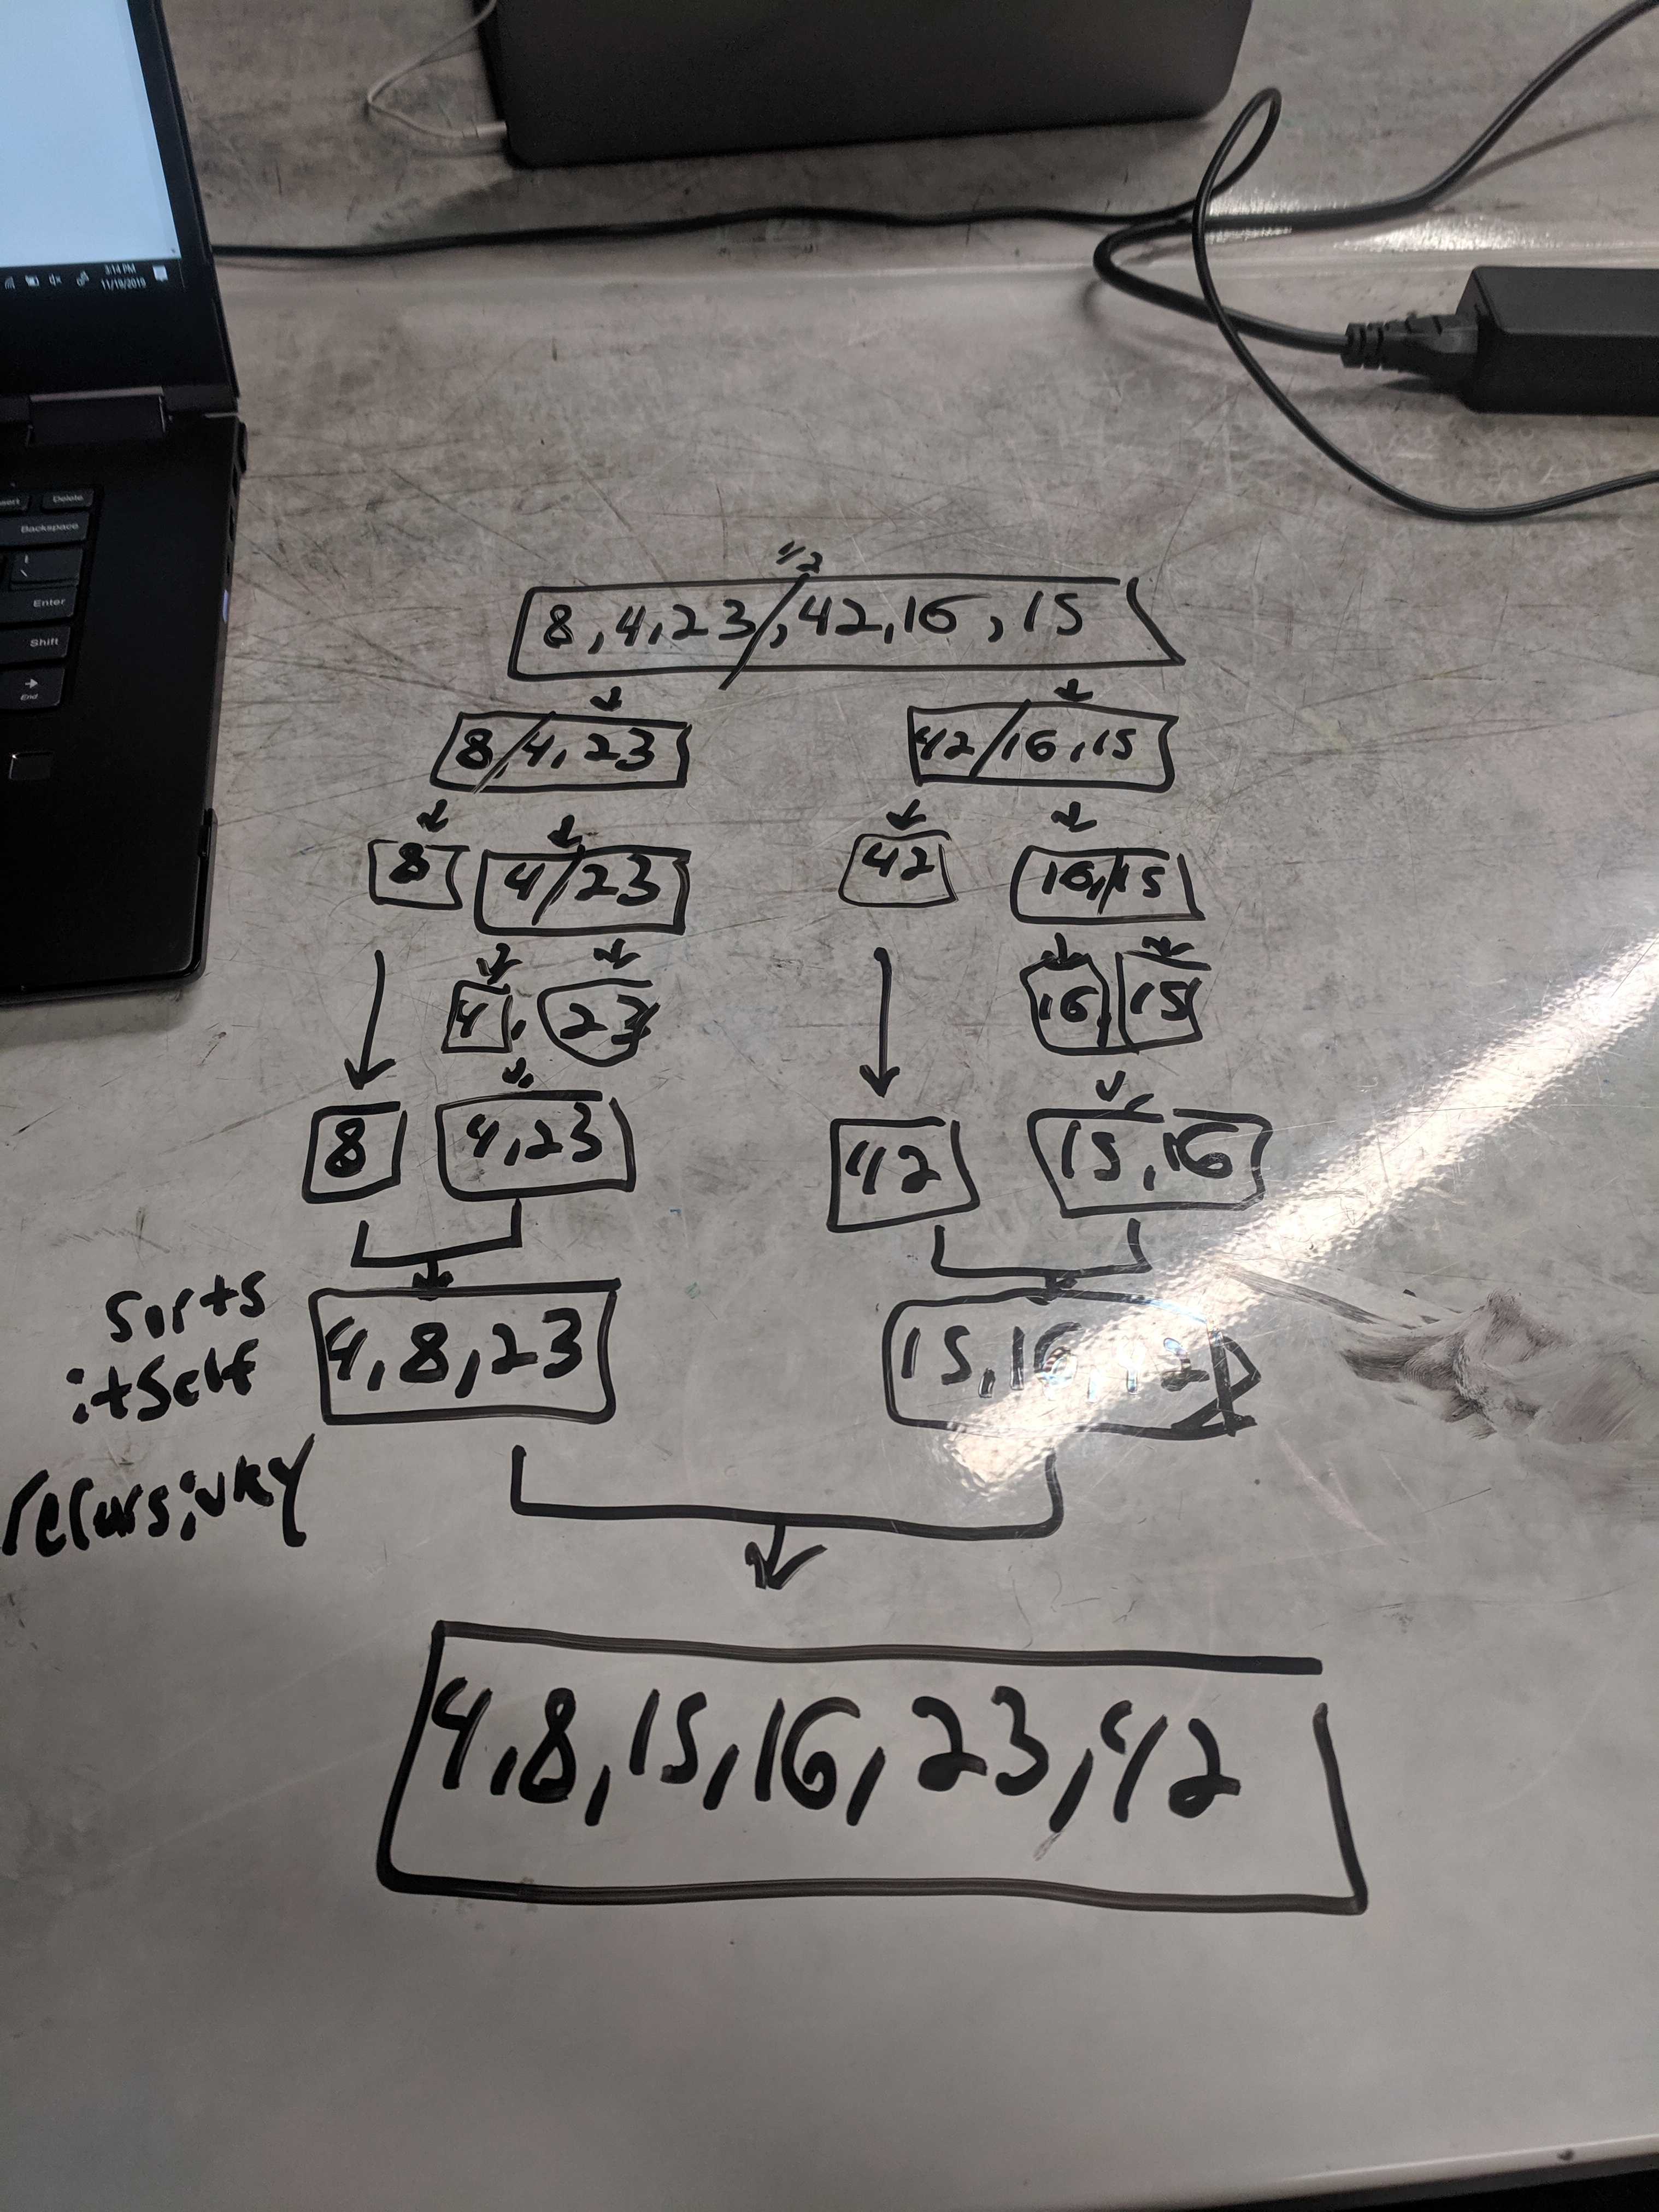 3:14 PM
11/19/2019
Delete
Backspace
Enter
Shift
End
1/2
8,4,23/,42,16,15
8/4,23
42/16,15
8
4/23
42
16,/15
4,
23
16,
15
8
4,23
42
15,16
sorts
itself
4,8,23
15,16,42
4,8,15,16,23,42